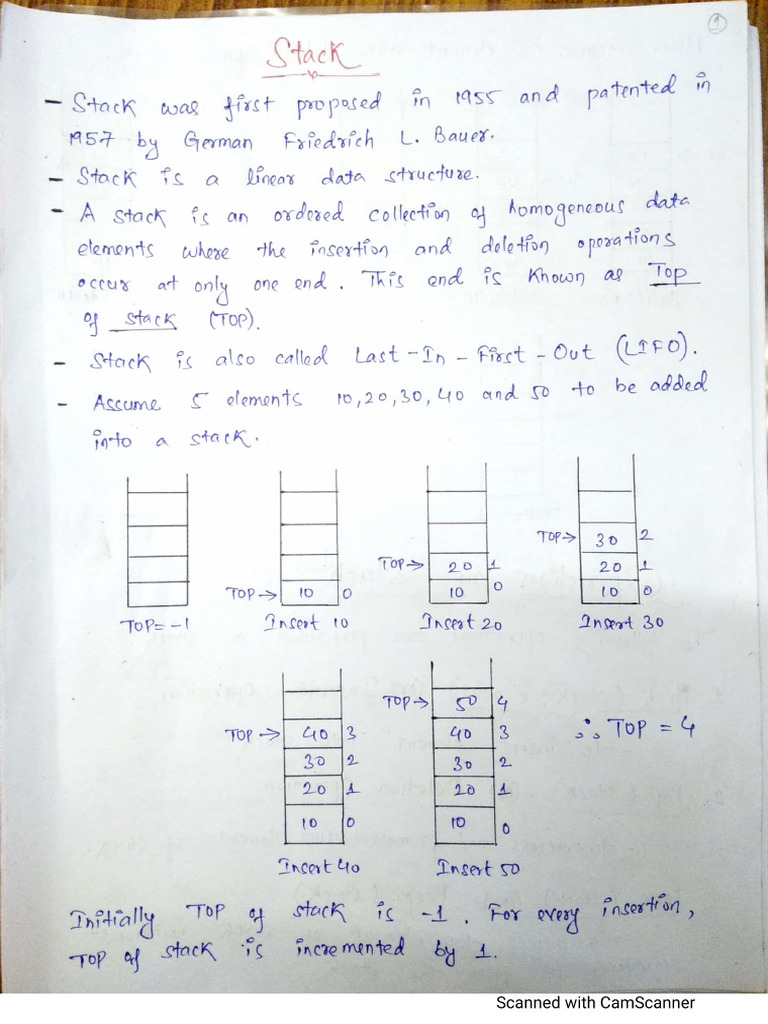 1
Stack
- Stack was first proposed in 1955 and patented in
1957 by German Friedrich L. Bauer.
- Stack is a linear data structure.
- A stack is an ordered collection of homogeneous data
elements where the insertion and deletion operations
occur at only one end. This end is known as Top
of stack (TOP).
- Stack is also called Last-In-First-Out (LIFO).
- Assume 5 elements 10,20,30,40 and 50 to be added
into a stack.
TOP→ 30 2
TOP→ 20 1 20 1
TOP→ 10 0 10 0 10 0
TOP=-1 Insert 10 Insert 20 Insert 30
TOP→ 50 4
TOP→ 40 3 40 3 ∴ TOP = 4
30 2 30 2
20 1 20 1
10 0 10 0
Insert 40 Insert 50
Initially TOP of stack is -1. For every insertion,
TOP of stack is incremented by 1.
Scanned with CamScanner